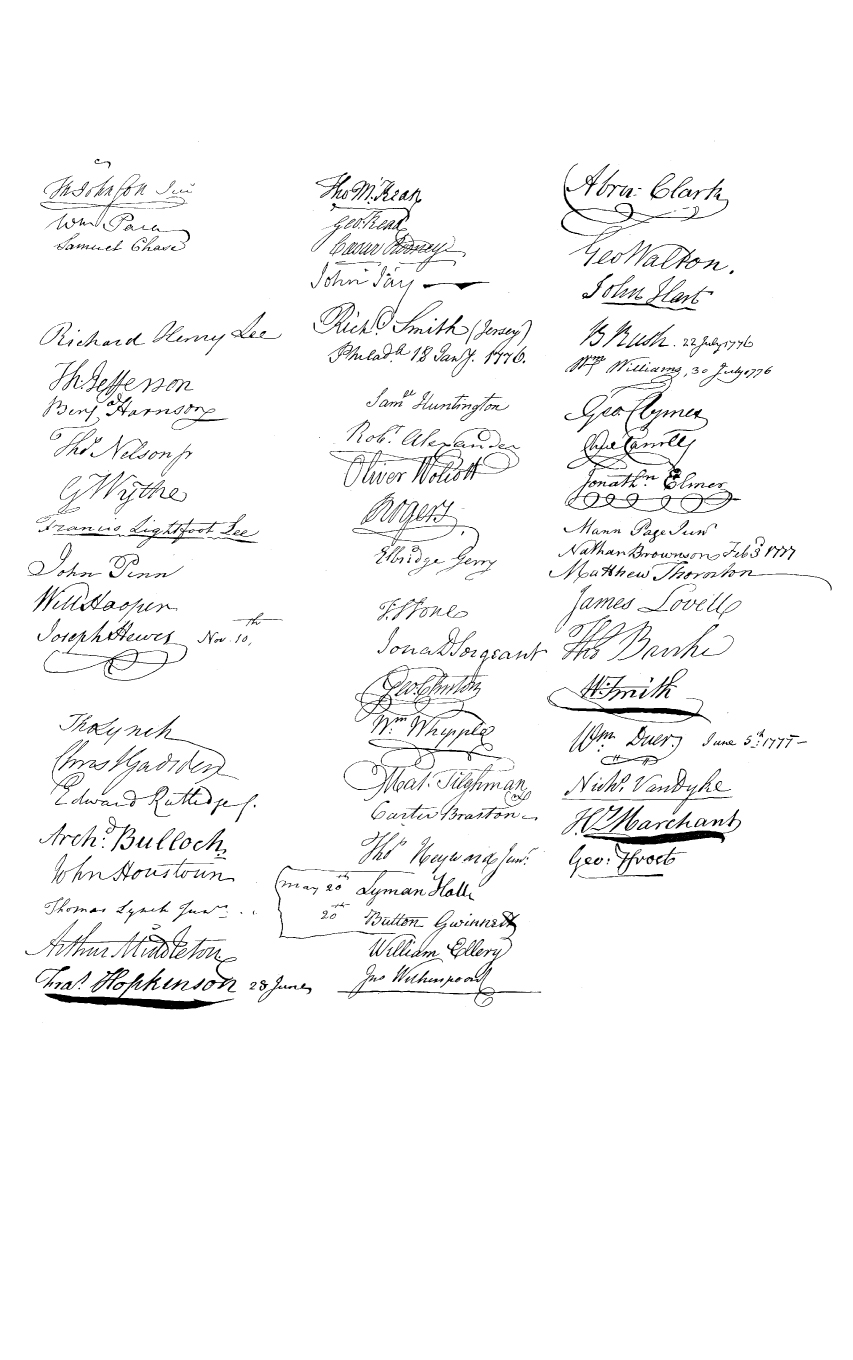 Th Johnson Jun
Wm Paca
Samuel Chase
Richard Henry Lee
Th: Jefferson
Benj Harrison
Thos Nelson jr
G Wythe
Francis Lightfoot Lee
John Penn
Will Hooper
Joseph Hewes Nov. 10th
Tho Lynch
Chris Gadsden
Edward Rutledge
Archd Bulloch
John Houstoun
Thomas Lynch Junr
Arthur Middleton
Fras. Hopkinson 28 June
Tho M:Kean
Geo: Read
Caesar Rodney
John Jay
Richd Smith (Jersey)
Philada 18 Jany. 1776.
Saml Huntington
Robt Alexander
Oliver Wolcott
Rogers
Elbridge Gerry
T. Stone
Jona D Sergeant
Geo. Clinton
Wm Whipple
Mat. Tilghman
Carter Braxton
Thos Heyward Junr.
May 20th Lyman Hall
20th Button Gwinnett
William Ellery
Jno Witherspoon
Abra Clark
Geo Walton.
John Hart
B Rush. 22 July 1776
Wm Williams, 30 July 1776
Geo Clymer
Cha Carroll
Jonathn Elmer
Mann Page Junr
Nathan Brownson Feb 3d 1777
Matthew Thornton
James Lovell
Thos Burke
W. Smith
Wm. Duer, June 5th 1777
Nichs. Van Dyke
Hy Marchant
Geo: Frost